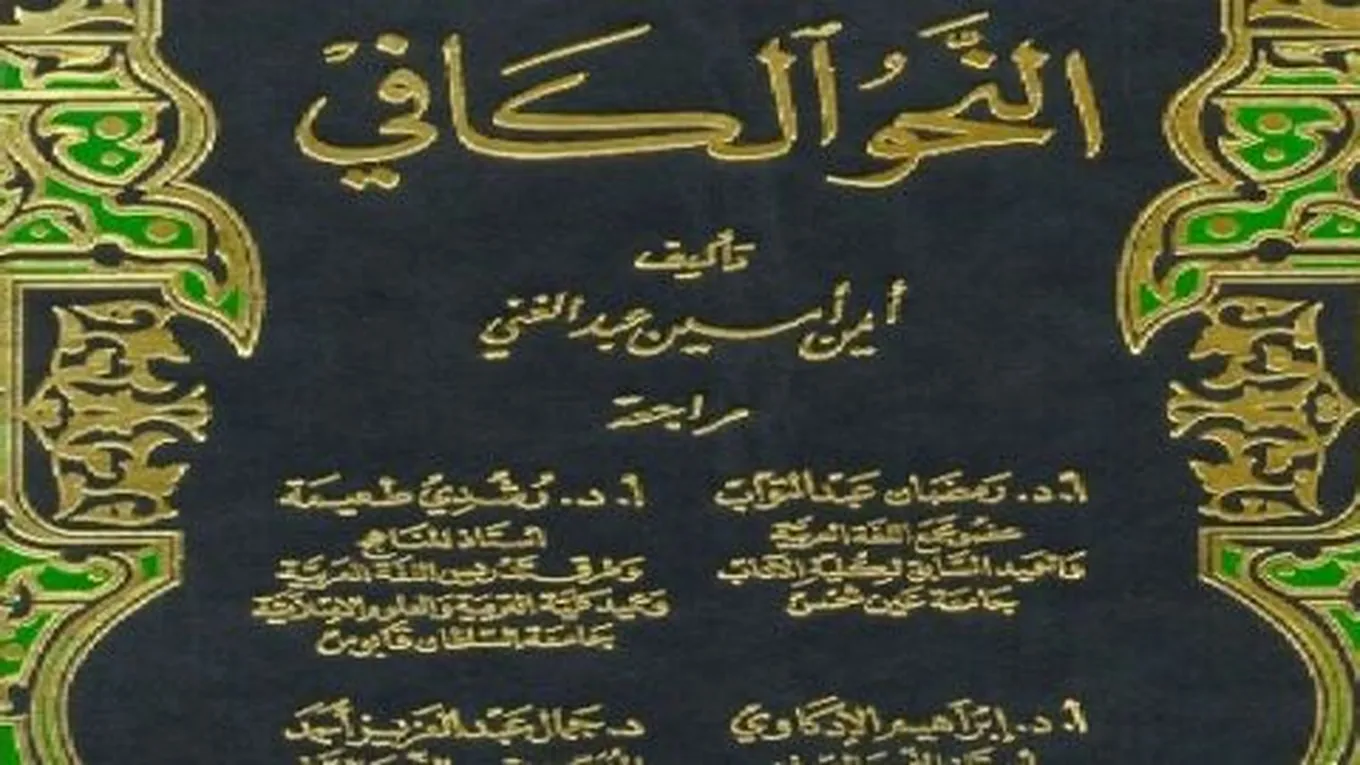 النَّحو ٱلكَافي
تأليف
أيمن أمين عبد الغني
مراجعة
أ. د. رَمَضَان عَبد التوَّاب
عضو مجمع اللغة العربية
والعميد السابق لكلية الآداب
جامعة عين شمس
أ. د. رُشْدِيْ طعيمَة
أستاذ المناهج
وطرق تدريس اللغة العربية
وعميد كلية التربية والعلوم الإسلامية
بجامعة السلطان قابوس
أ. د. إبْرَاهيم الإدكَاويْ
د. جمَال عَبْد العَزيز أحمَد